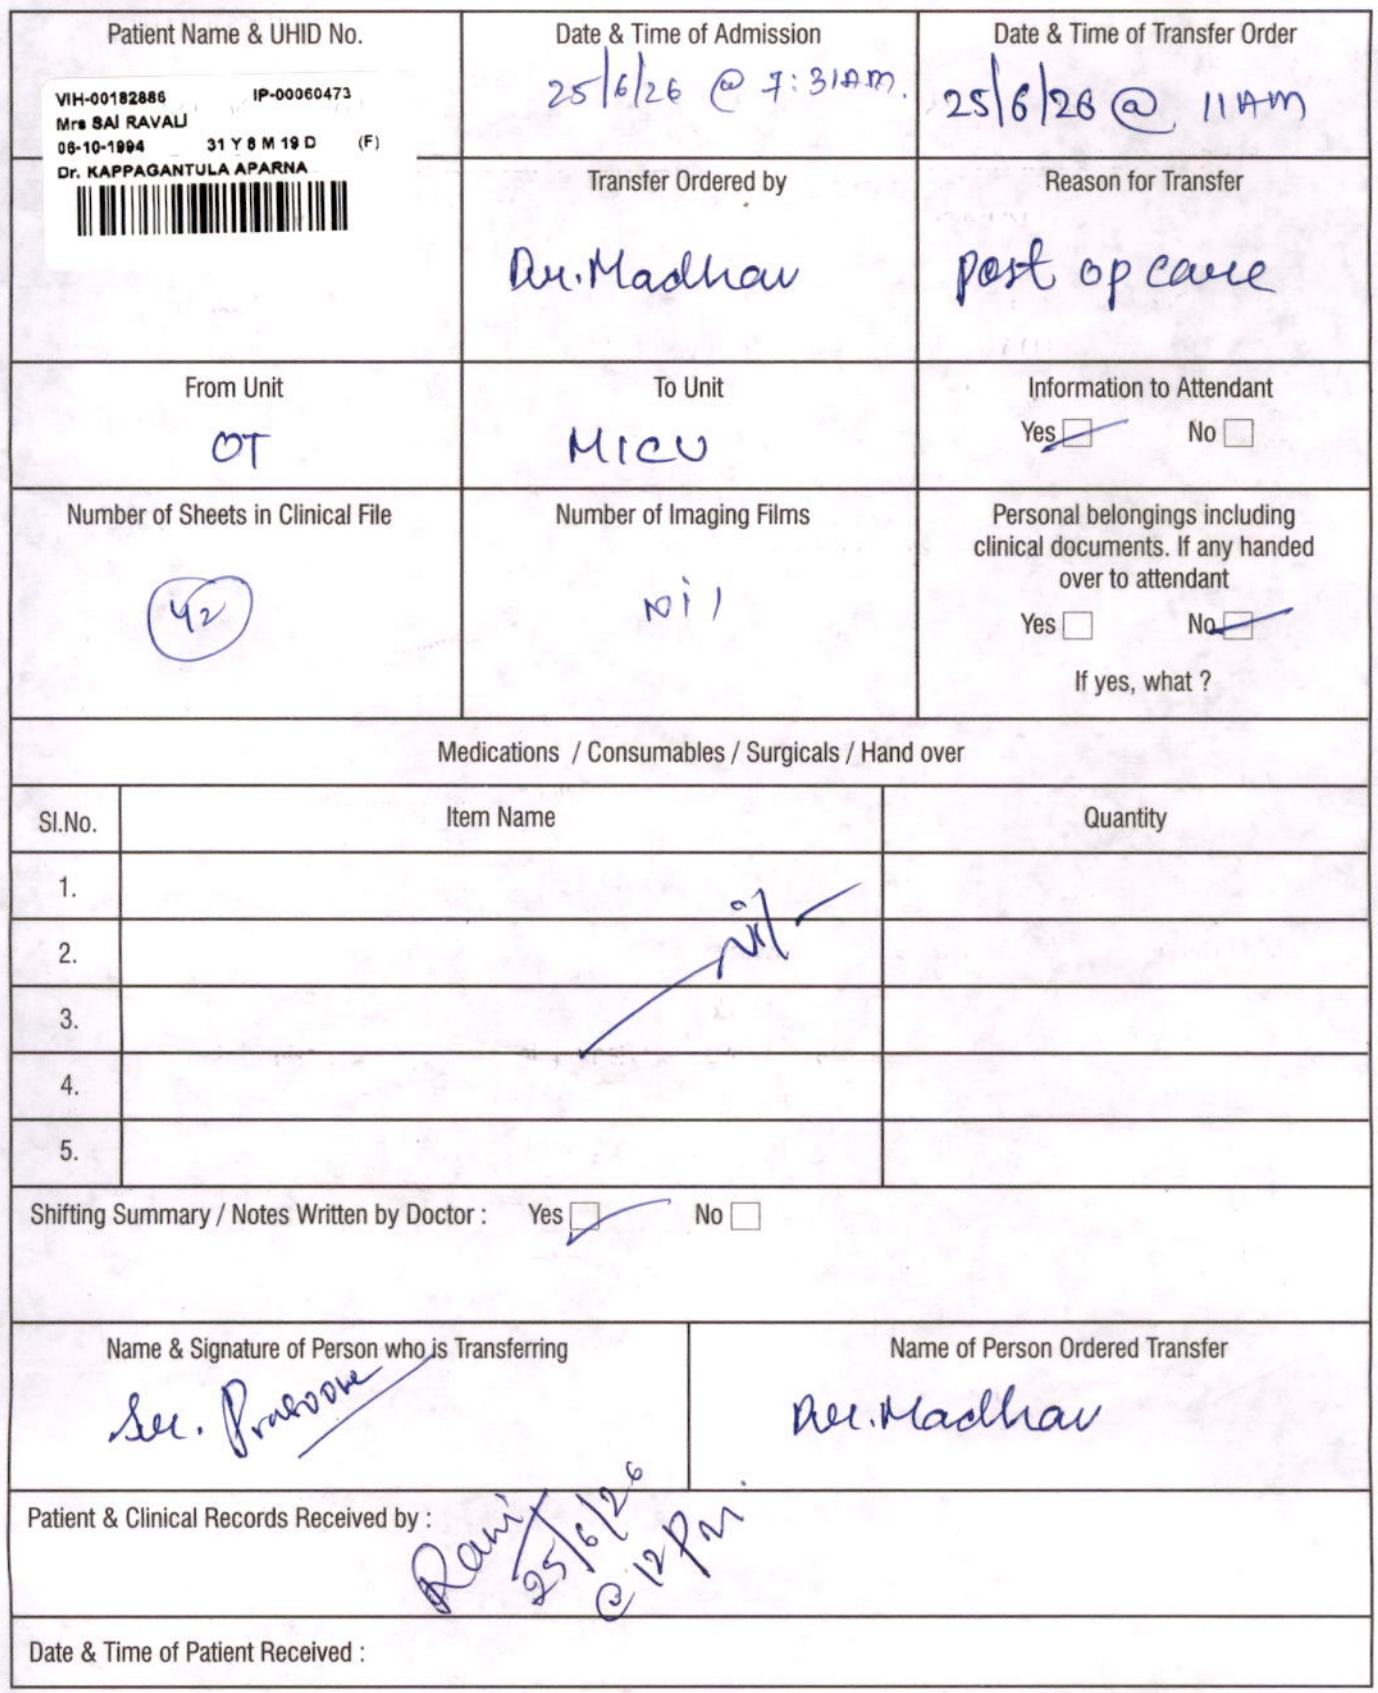 Patient Name & UHID No.
VIH-00182886 IP-00060473
Mrs SAI RAVALI
06-10-1994 31 Y 8 M 19 D (F)
Dr. KAPPAGANTULA APARNA
Date & Time of Admission
25/6/26 @ 7:31AM.
Date & Time of Transfer Order
25/6/26 @ 11AM
Transfer Ordered by
Dr. Madhav
Reason for Transfer
post op care
From Unit
OT
To Unit
MICU
Information to Attendant
Yes No
Number of Sheets in Clinical File
42
Number of Imaging Films
Nil
Personal belongings including
clinical documents. If any handed
over to attendant
Yes No
If yes, what ?
Medications / Consumables / Surgicals / Hand over
Sl.No. Item Name Quantity
1.
Nil
2.
3.
4.
5.
Shifting Summary / Notes Written by Doctor : Yes No
Name & Signature of Person who is Transferring
Name of Person Ordered Transfer
Dr. Madhav
Patient & Clinical Records Received by :
25/6/26
@ 12 Pm.
Date & Time of Patient Received :